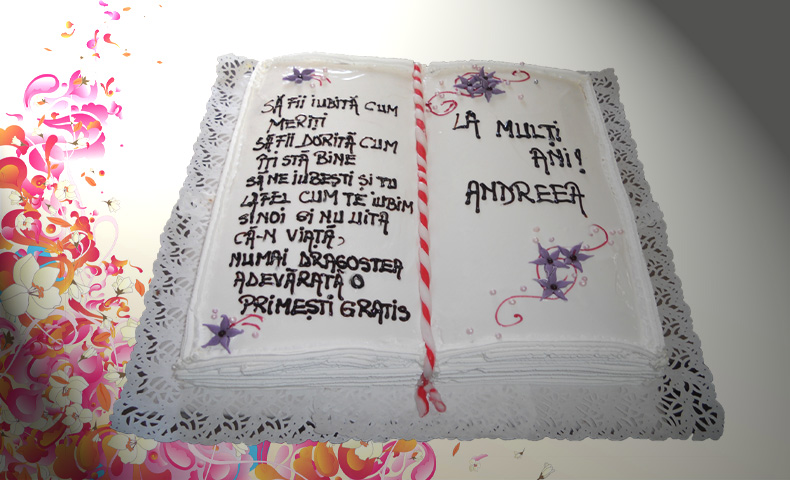 SĂ FII IUBITĂ CUM
MERIȚI
SĂ FII DORITĂ CUM
ÎȚI STĂ BINE
SĂ NE IUBEȘTI ȘI TU
LA FEL CUM TE IUBIM
ȘI NOI ȘI NU UITA
CĂ-N VIAȚĂ,
NUMAI DRAGOSTEA
ADEVĂRATĂ O
PRIMEȘTI GRATIS
LA MULȚI
ANI!
ANDREEA